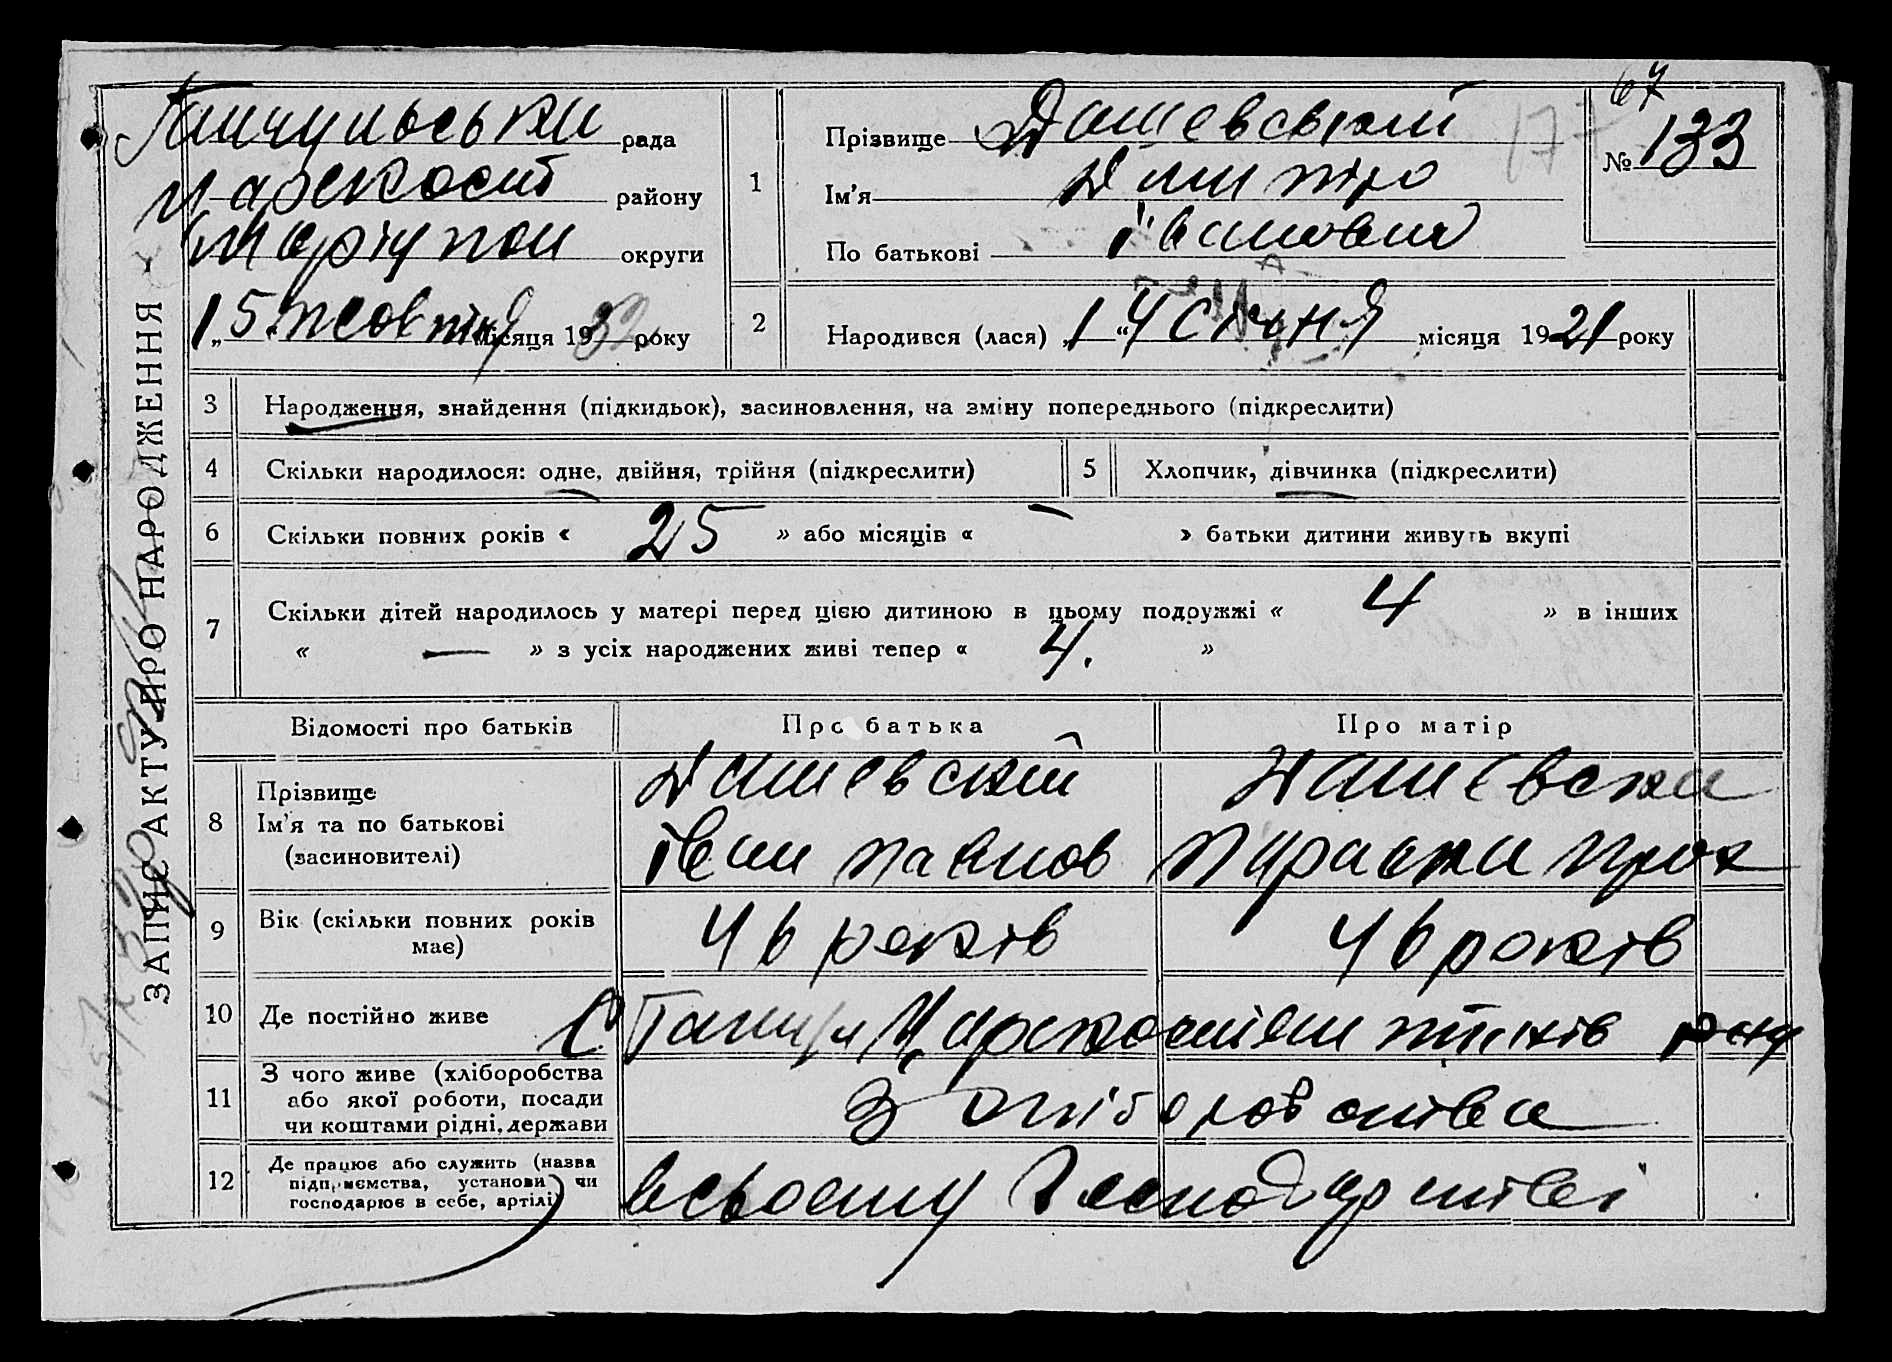 67
рада
району
округи
15 жовтня місяця 1932 року
ЗАПИС АКТУ ПРО НАРОДЖЕННЯ
1
Прізвище Дашевський
Ім'я Дмитро
По батькові Іванович
17
№ 133
2
Народився (лася) „14“ січня місяця 1921 року
3
Народження, знайдення (підкидьок), засиновлення, на зміну попереднього (підкреслити)
4
Скільки народилося: одне, двійня, трійня (підкреслити)
5
Хлопчик, дівчинка (підкреслити)
6
Скільки повних років « 25 » або місяців « — » батьки дитини живуть вкупі
7
Скільки дітей народилось у матері перед цією дитиною в цьому подружжі « 4 » в інших
« — » з усіх народжених живі тепер « 4. »
Відомості про батьків
Про батька
Про матір
8
Прізвище
Ім'я та по батькові
(засиновителі)
Дашевский
Іван Павлов
Дашевска
Параска Прох
9
Вік (скільки повних років
має)
46 років
46 років
10
Де постійно живе
с
11
З чого живе (хліборобства
або якої роботи, посади
чи коштами рідні, держави
З хліборобства
12
Де працює або служить (назва
підприємства, установи чи
господарює в себе, артілі)
всьоєму господарстві